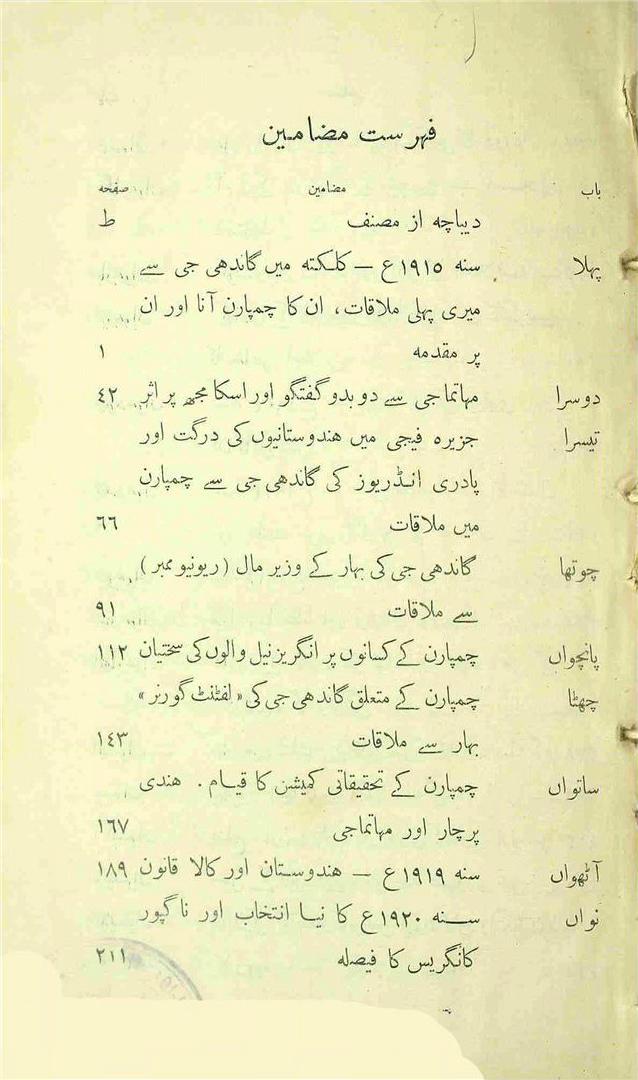 فہرست مضامین
باب مضامین صفحہ
دیباچہ از مصنف ط
پہلا سنه ۱۹۱٥ع — کلکته میں گاندھی جی سے
میری پہلی ملاقات، ان کا چمپارن آنا اور ان
پر مقدمه ۱
دوسرا مہاتما جی سے دوبدو گفتگو اور اسکا مجھ پر اثر ٤۲
تیسرا جزیرہ فیجی میں ھندوستانیوں کی درگت اور
پادری انڈریوز کی گاندھی جی سے چمپارن
میں ملاقات ٦٦
چوتھا گاندھی جی کی بہار کے وزیر مال (ریونیو ممبر)
سے ملاقات ۹۱
پانچواں چمپارن کے کسانوں پر انگریز نیل والوں کی سختیان ۱۱۲
چھٹا چمپارن کے متعلق گاندھی جی کی «لفٹنٹ گورنر»
بہار سے ملاقات ۱٤۳
ساتواں چمپارن کے تحقیقاتی کمیشن کا قیام. ھندی
پرچار اور مہاتماجی ۱٦۷
آٹھواں سنه ۱۹۱۹ع — ھندوستان اور کالا قانون ۱۸۹
نواں سنه ۱۹۲۰ع کا نیا انتخاب اور ناگپور
کانگریس کا فیصله ۲۱۱